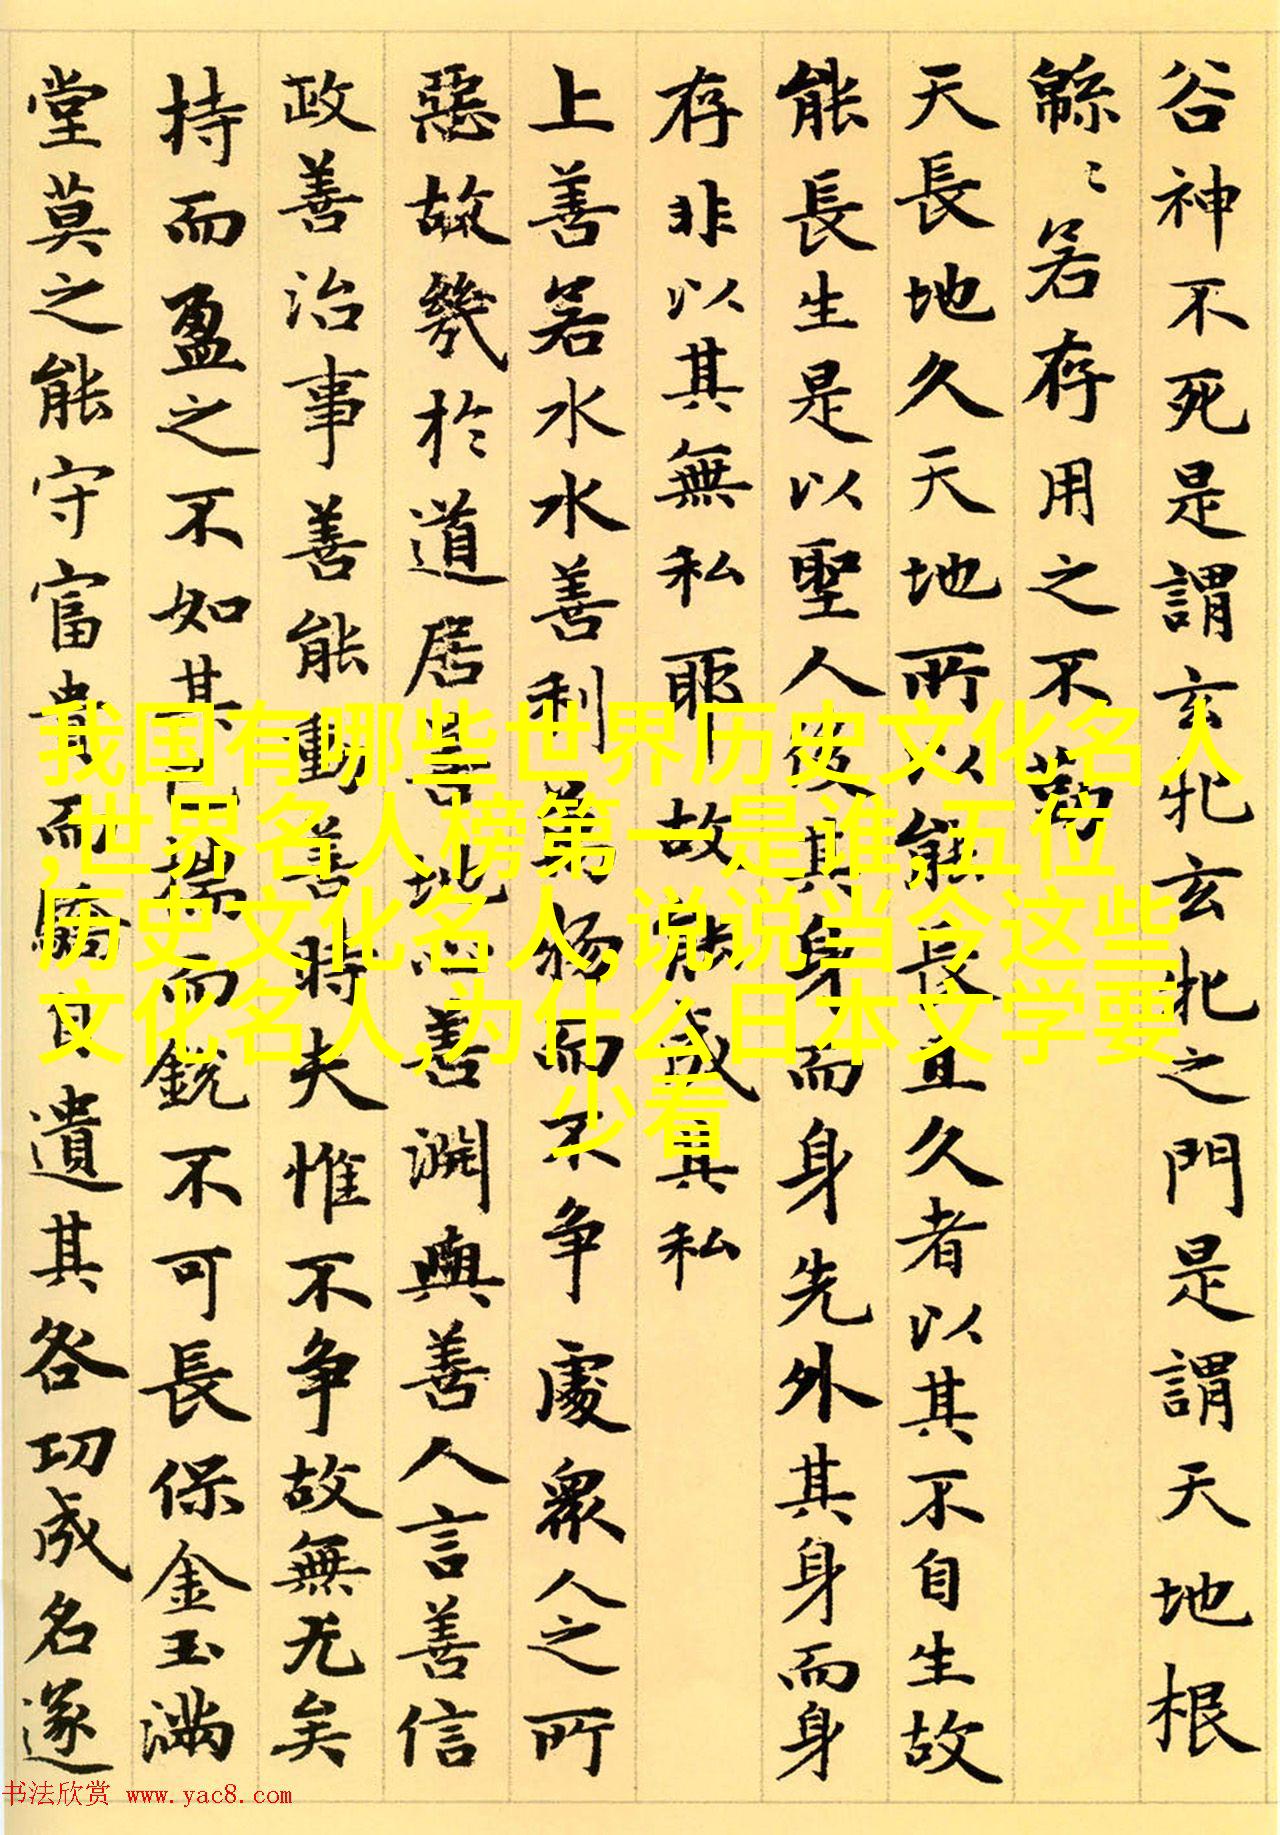 谷神不死是謂玄牝玄牝之門是謂天地根
緜〻若存用之不勤
天長地久天地所以能長且久者以其不自生故
能長生是以聖人後其身而身先外其身而身
存非以其無私耶故能成其私
上善若水水善利萬物而不争處衆人之所
惡故幾於道居善地心善淵與善人言善信
政善治事善能動善時夫惟不争故無尤矣
持而盈之不如其已揣而銳不可長保金玉滿
堂莫之能守富貴而驕自遺其咎功成名遂
我国有哪些世界历史文化名人
,世界名人榜第一是谁,五位
历史文化名人,说说当今这些
文化名人,为什么日本文学要
少看
书法欣赏 www.yac8.com